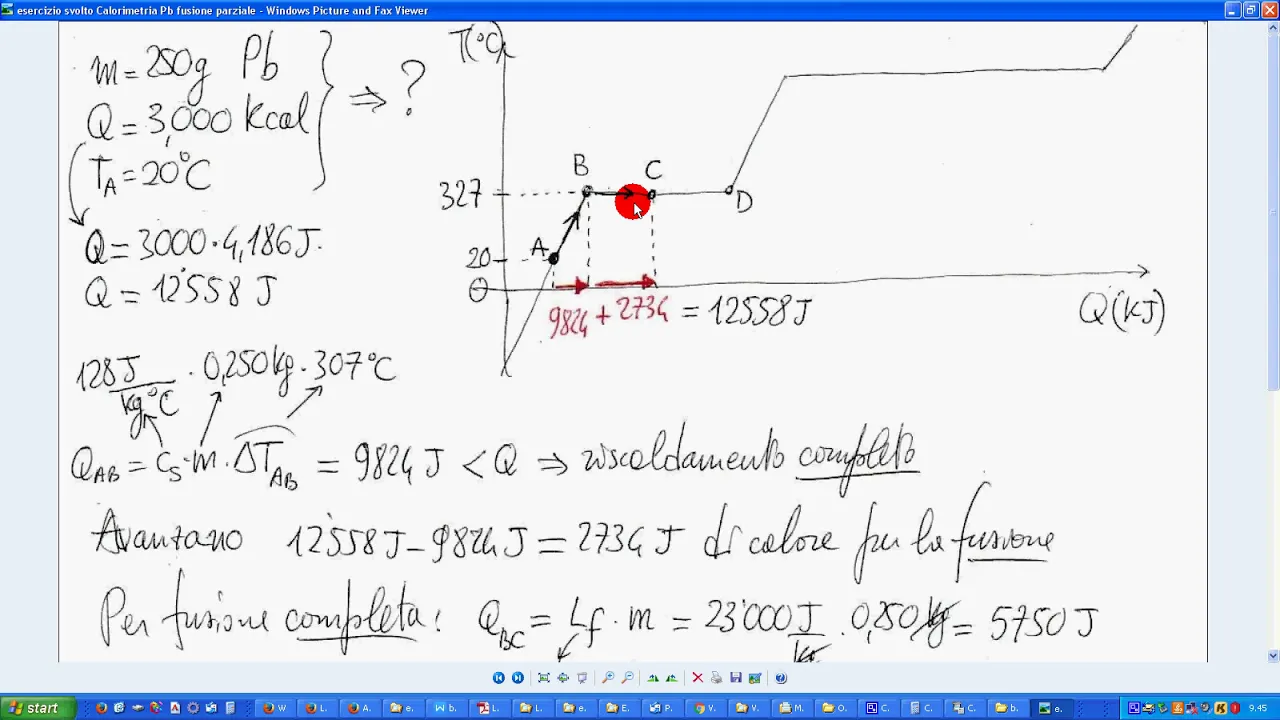 esercizio svolto Calorimetria Pb fusione parziale - Windows Picture and Fax Viewer
m = 250g Pb
Q = 3,000 Kcal
T_A = 20°C
⇒ ?
Q = 3000 · 4,186 J.
Q = 12'558 J
T(°C)
327
20
0
A
B
C
D
9824 + 2734 = 12558 J
Q (kJ)
128 J/kg°C · 0,250 kg · 307°C
Q_AB = c_s · m · ΔT_AB = 9824 J < Q ⇒ riscaldamento completo
Avanzano 12'558 J - 9824 J = 2734 J di calore per la fusione
Per fusione completa: Q_BC = L_f · m = 23'000 J/kg · 0,250 kg = 5750 J
start
W
L.
A.
e.
W b.
L.
L.
e.
E.
P.
V.
V.
M.
O.
C.
C.
C.
b.
e.
9.45